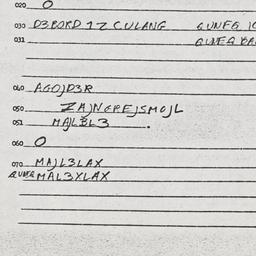 020 O
030 D3BORD 1Z CULANG GUNFG
031 GUNFG BA
040 AGOJD3R
050 ZAJNGREJSMOJL
051 MAJLBL3.
060 O
070 MAJL3LAX
GUNFG MAL3XLAX